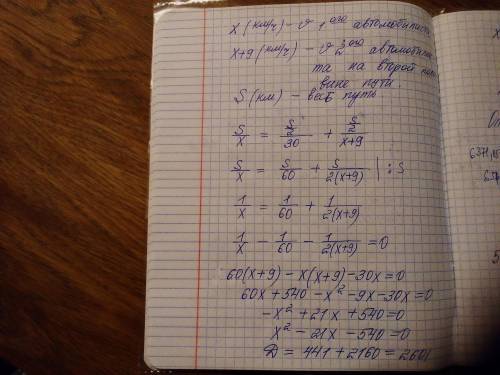 x (км/ч) – v 1ого автомобилиста
x+9 (км/ч) – v 2ого автомобилис
та на второй поло
вине пути.
S (км) – весь путь.
S/x = (S/2)/30 + (S/2)/(x+9)
S/x = S/60 + S/2(x+9) | : S
1/x = 1/60 + 1/2(x+9)
1/x – 1/60 – 1/2(x+9) = 0
60(x+9) – x(x+9) – 30x = 0
60x + 540 – x² – 9x – 30x = 0
–x² + 21x + 540 = 0
x² – 21x – 540 = 0
D = 441 + 2160 = 2601